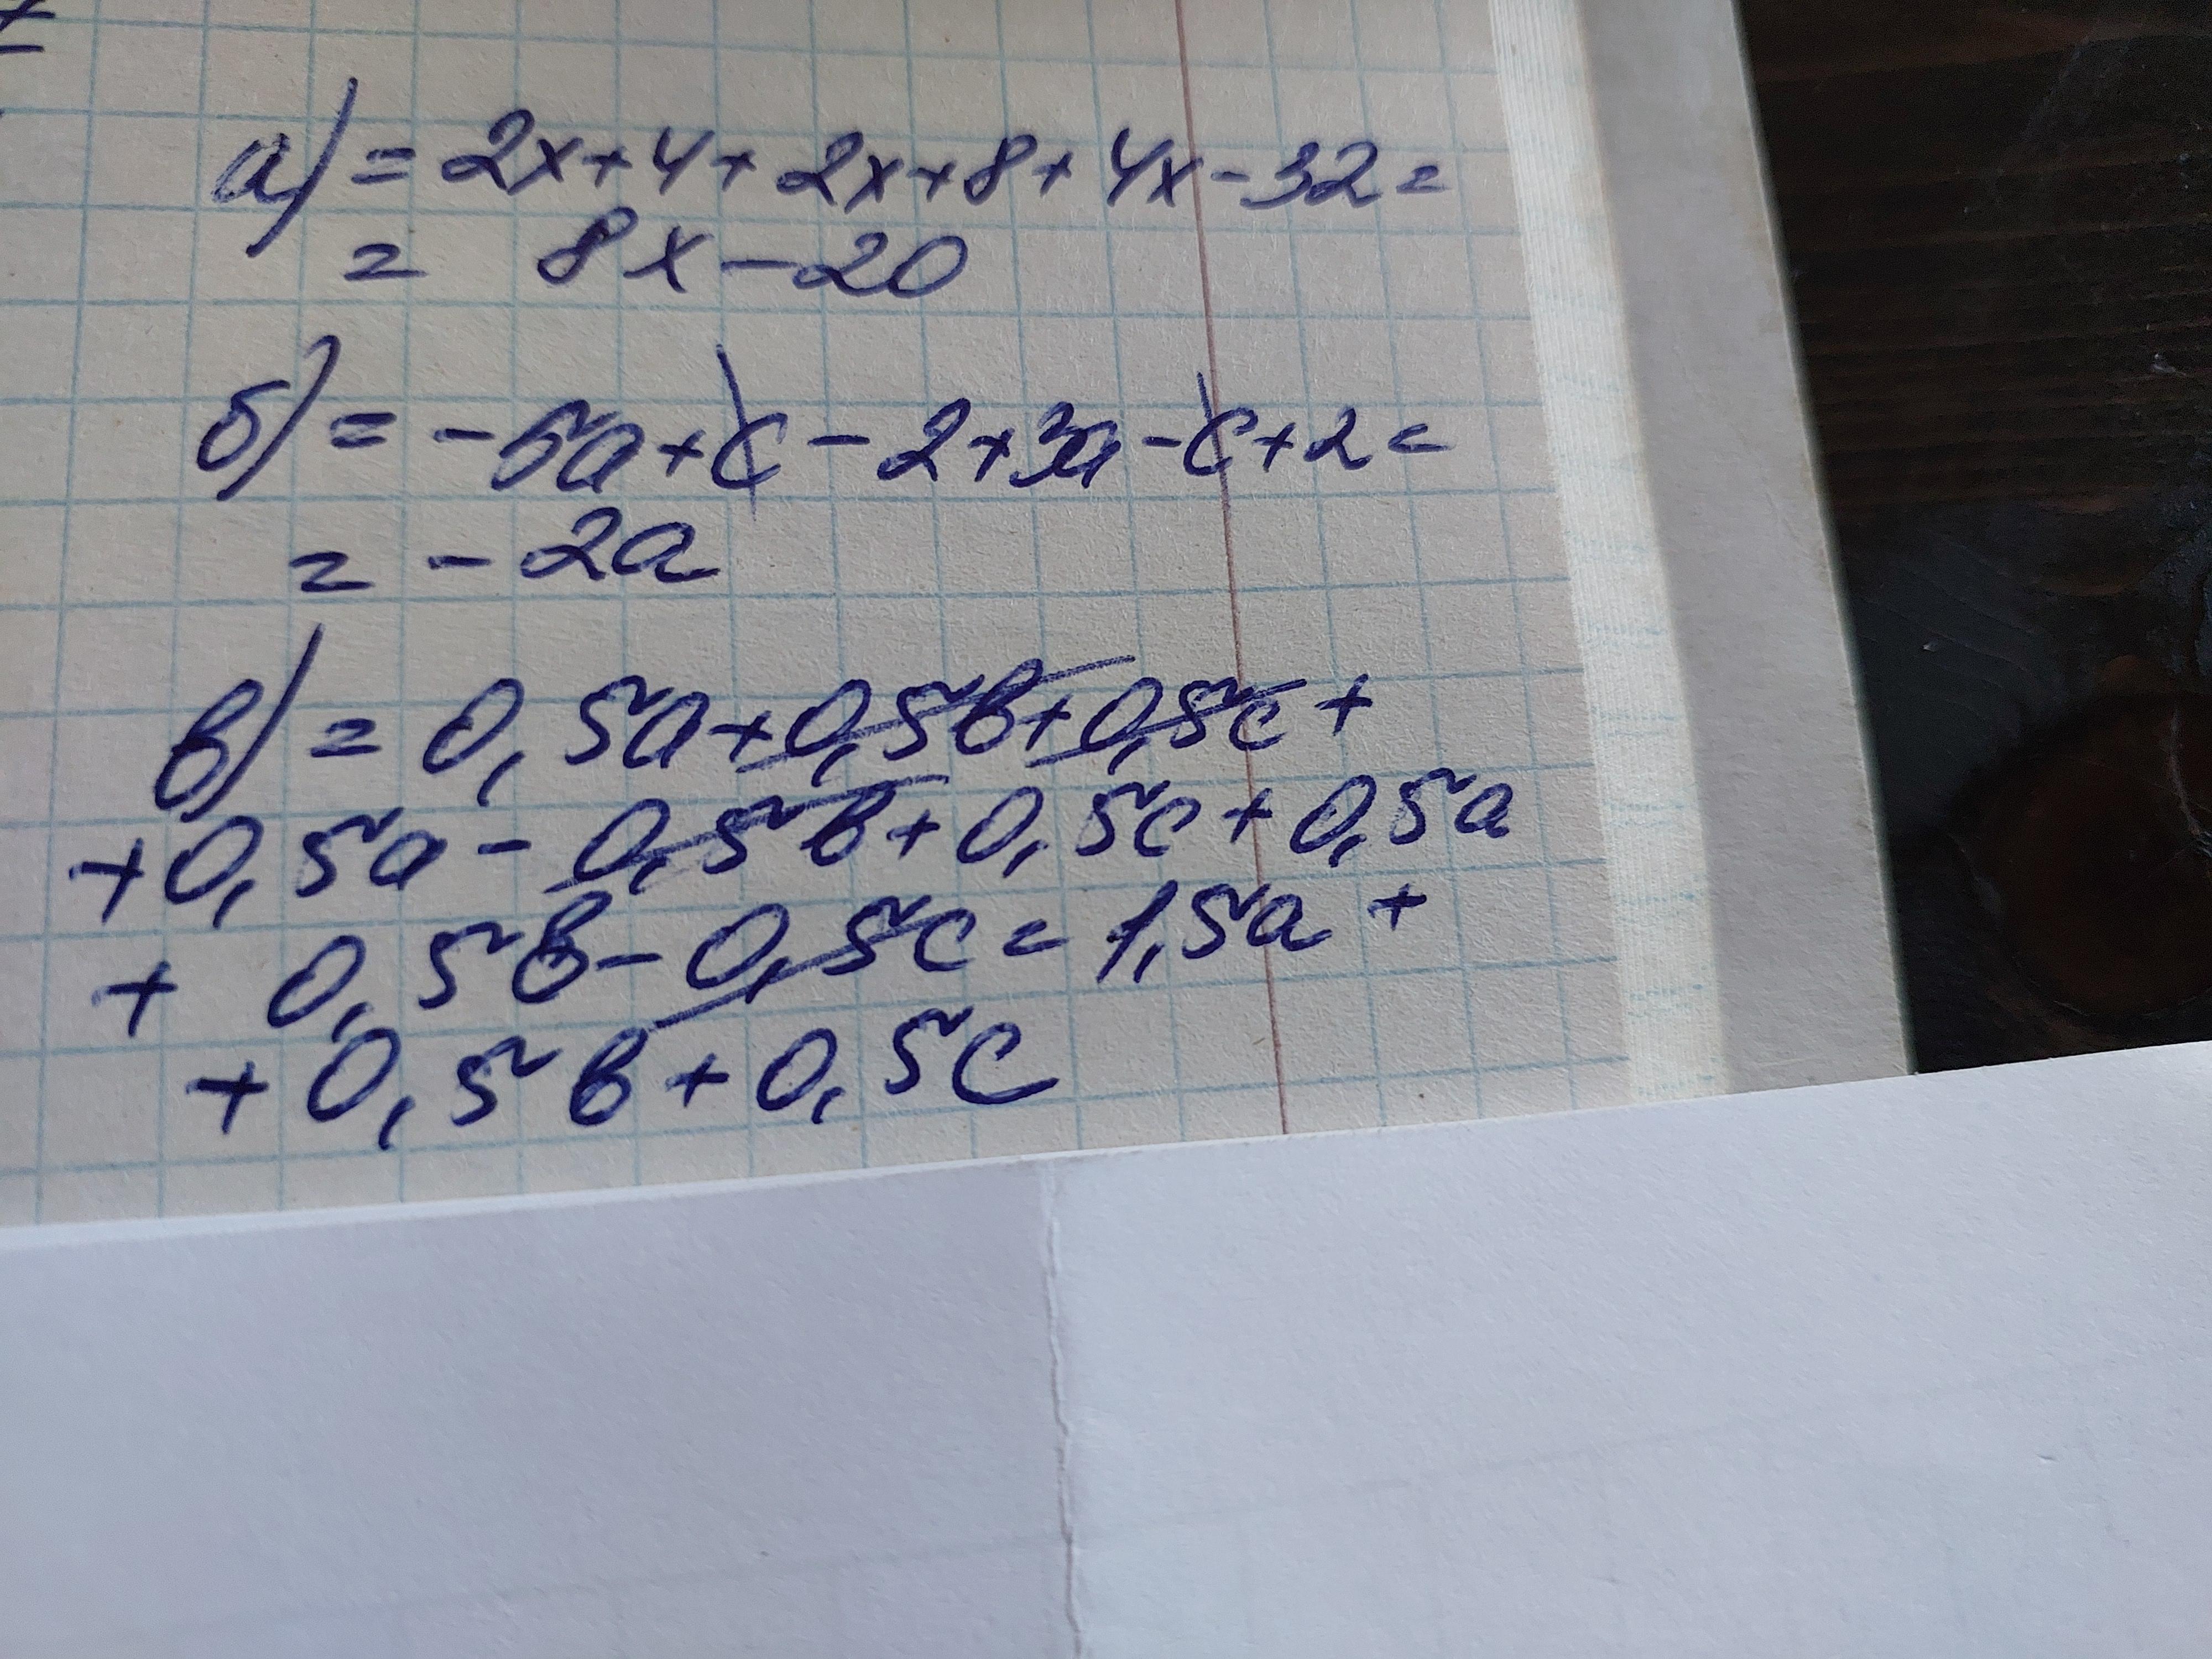 а) = 2x+4+2x+8+4x-32=
= 8x-20
б) = -5a+c-2+3a-c+2=
= -2a
в) = 0,5a+0,5b+0,5c+
+0,5a-0,5b+0,5c+0,5a
+ 0,5b-0,5c=1,5a+
+0,5b+0,5c